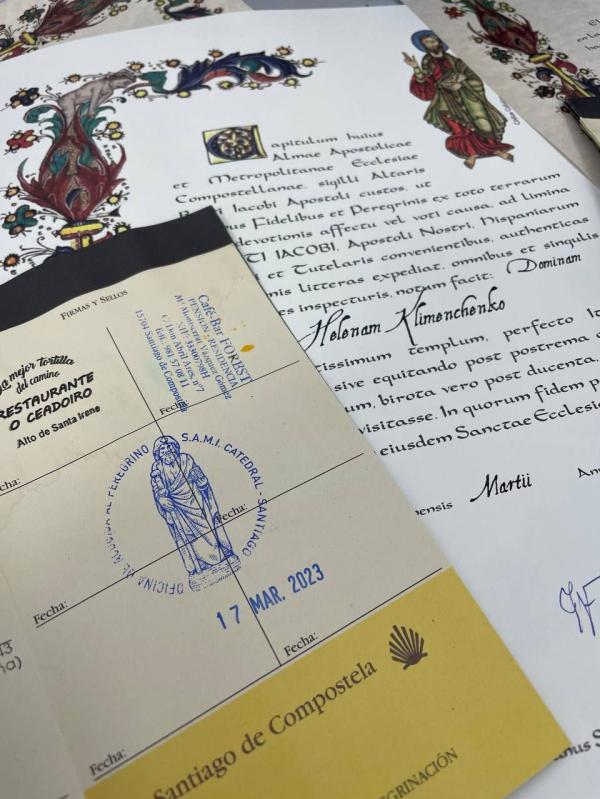 apitulum huius
Almae Apostolicae
et Metropolitanae Ecclesiae
Compostellanae, sigilli Altaris
Iacobi Apostoli custos, ut
Fidelibus et Peregrinis ex toto terrarum
devotionis affectu vel voti causa, ad limina
TI IACOBI, Apostoli Nostri, Hispaniarum
et Tutelaris convenientibus, authenticas
litteras expediat, omnibus et singulis
inspecturis, notum facit: Dominam
Helenam Klimenchenko
issimum templum, perfecto
sive equitando post postrema
birota vero post ducenta,
visitasse. In quorum fidem
eiusdem Sanctae
ensis Martii
FIRMAS Y SELLOS
mejor tortilla
del camino
RESTAURANTE
O CEADOIRO
Alto de Santa Irene
Café-Bar FOREST
PENSIÓN - RESIDENCIA
Mª Montserrat Vázquez González
C/ Don Abril Ares, nº7
15704 Santiago de Compostela
Fecha:
OFICINA DE ACOGIDA AL PEREGRINO S.A.M.I. CATEDRAL - SANTIAGO
Fecha:
Fecha:
17 MAR. 2023
Fecha:
Fecha:
Santiago de Compostela